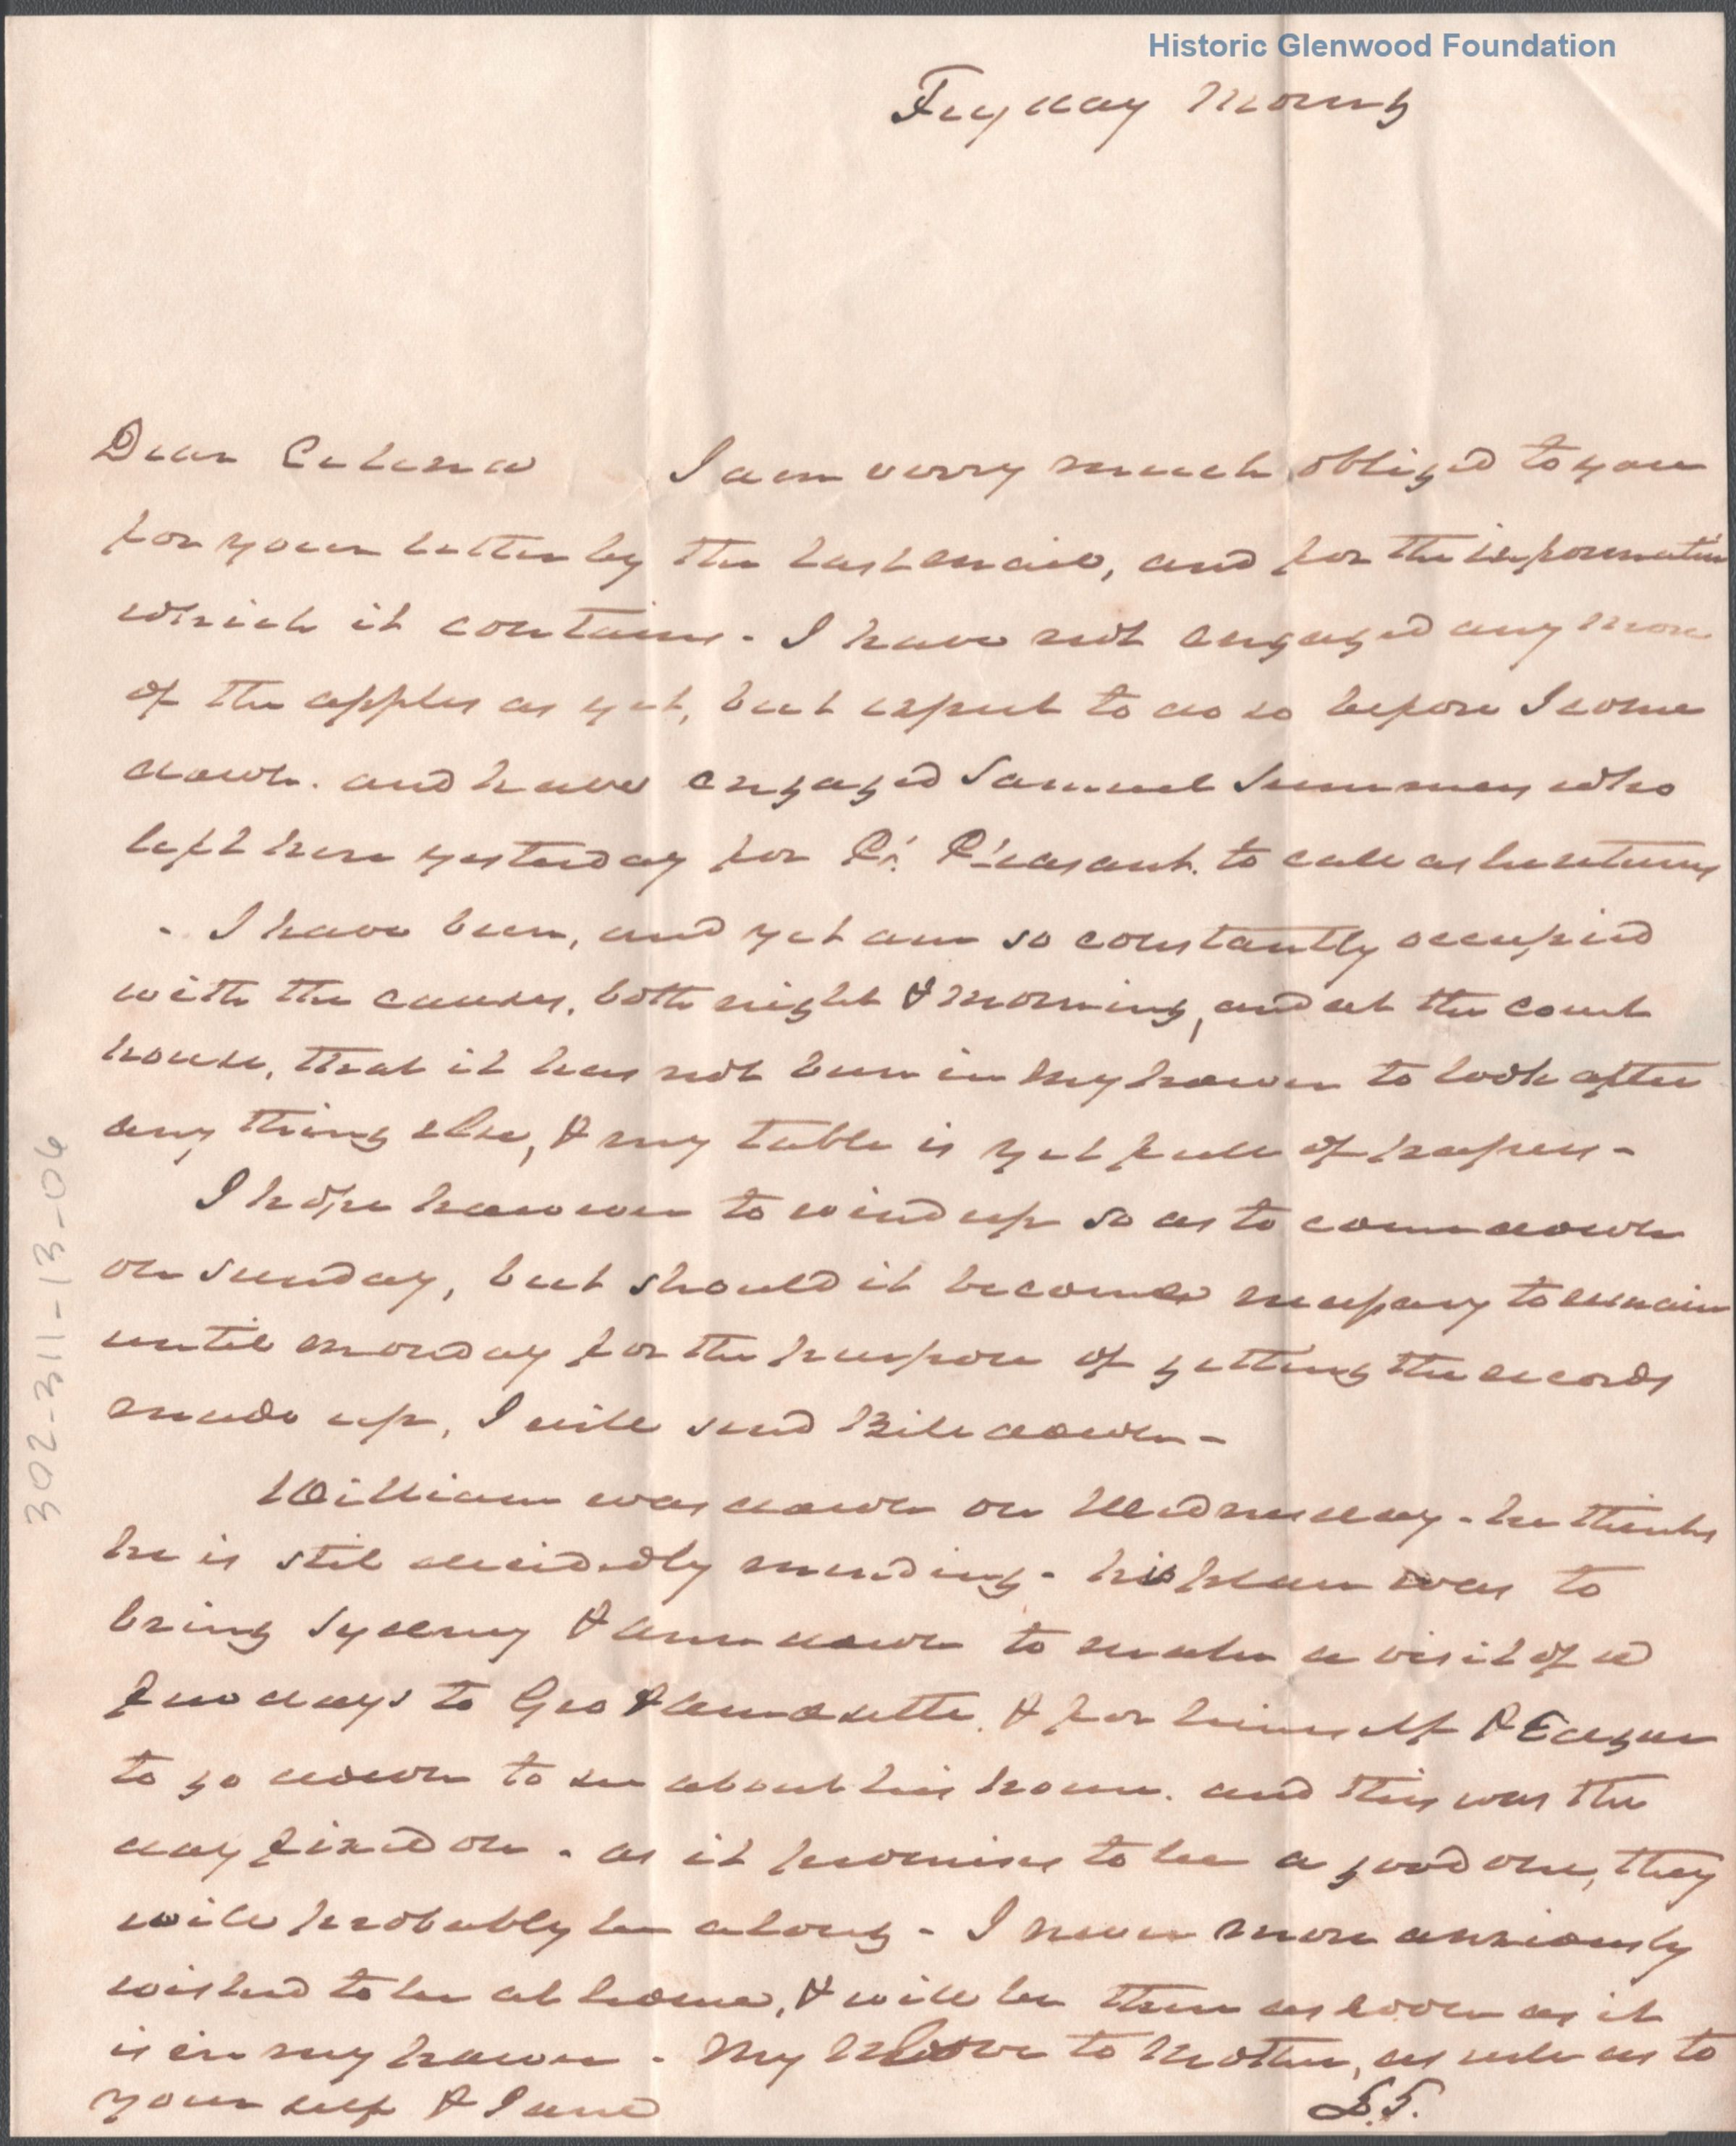 Historic Glenwood Foundation
Fryday Morng
Dear Celena I am verry much obliged to you
for your letter by the last mail, and for the information
which it contains - I have not engaged any more
of the apples as yet, but expect to do so before I come
down. and have engaged Samuel Summers who
left here yesterday for Pt. Pleasant. to call as he returns
- I have been, and yet am so constantly occupied
with the causes, both night & morning, and at the court
house, that it has not been in my power to look after
any thing else, & my table is yet full of papers -
I hope however to wind up so as to come down
on Sunday, but should it become necessary to remain
until monday for the purpose of getting the records
made up, I will send Bill down -
William was down on Wednesday - he thinks
he is still decidedly mending - his plan was to
bring Sydney & Ann down to make a visit of a
few days to Geo & & for himself & Edgar
to go down to see about his house. and this was the
day fixed on - as it promises to be a good one, they
will probably be along - I never more anxiously
wished to be at home, & will be there as soon as it
is in my power - My love to Mother, as well as to
your self & Jane L.S.
302-311-13-06